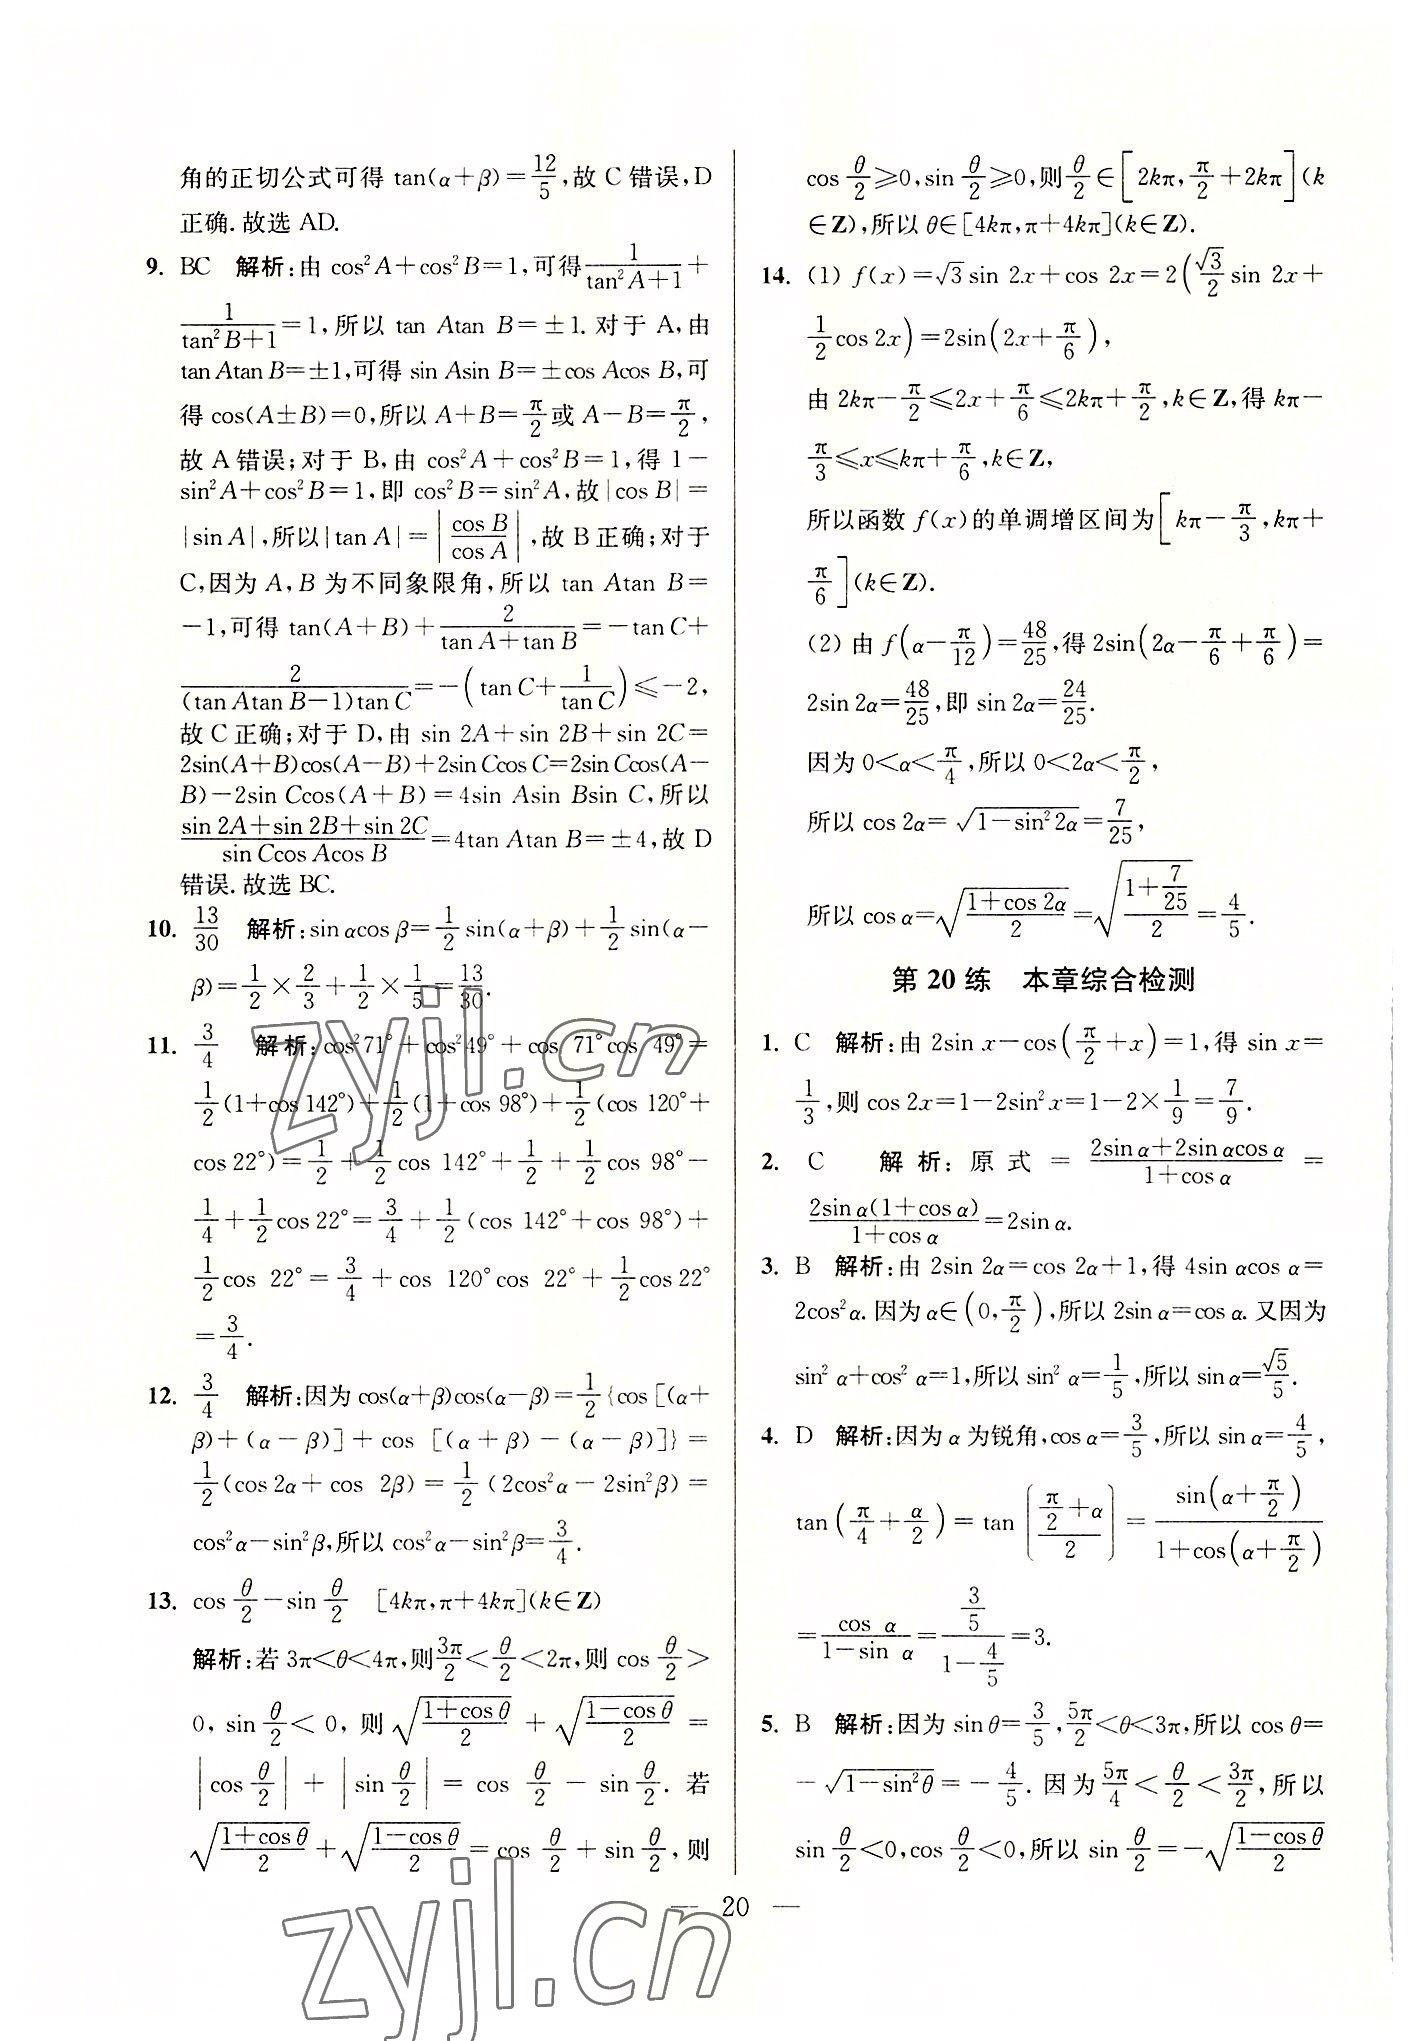 角的正切公式可得 tan(α+β)=12/5,故 C 错误,D
正确.故选 AD.
9. BC 解析:由 cos²A+cos²B=1,可得 1/(tan²A+1) +
1/(tan²B+1)=1,所以 tan Atan B=±1.对于 A,由
tan Atan B=±1,可得 sin Asin B=±cos Acos B,可
得 cos(A±B)=0,所以 A+B=π/2 或 A-B=π/2,
故 A 错误;对于 B,由 cos²A+cos²B=1,得 1-
sin²A+cos²B=1,即 cos²B=sin²A,故|cos B|=
|sin A|,所以|tan A|=|cos B/cos A|,故 B 正确;对于
C,因为 A,B 为不同象限角,所以 tan Atan B=
-1,可得 tan(A+B)+2/(tan A+tan B)=-tan C+
2/((tan Atan B-1)tan C)=-(tan C+1/tan C)≤-2,
故 C 正确;对于 D,由 sin 2A+sin 2B+sin 2C=
2sin(A+B)cos(A-B)+2sin Ccos C=2sin Ccos(A-
B)-2sin Ccos(A+B)=4sin Asin Bsin C,所以
(sin 2A+sin 2B+sin 2C)/(sin Ccos Acos B)=4tan Atan B=±4,故 D
错误.故选 BC.
10. 13/30 解析:sin αcos β=1/2 sin(α+β)+1/2 sin(α-
β)=1/2×2/3+1/2×1/5=13/30.
11. 3/4 解析:cos²71°+cos²49°+cos 71°cos 49°=
1/2(1+cos 142°)+1/2(1+cos 98°)+1/2(cos 120°+
cos 22°)=1/2+1/2 cos 142°+1/2+1/2 cos 98°-
1/4+1/2 cos 22°=3/4+1/2(cos 142°+cos 98°)+
1/2 cos 22°=3/4+cos 120°cos 22°+1/2 cos 22°
=3/4.
12. 3/4 解析:因为 cos(α+β)cos(α-β)=1/2{cos[(α+
β)+(α-β)]+cos [(α+β)-(α-β)]}=
1/2(cos 2α+cos 2β)=1/2(2cos²α-2sin²β)=
cos²α-sin²β,所以 cos²α-sin²β=3/4.
13. cos θ/2-sin θ/2 [4kπ,π+4kπ](k∈Z)
解析:若 3π<θ<4π,则3π/2<θ/2<2π,则 cos θ/2>
0,sin θ/2<0,则 √((1+cos θ)/2)+√((1-cos θ)/2)=
|cos θ/2|+|sin θ/2|=cos θ/2-sin θ/2.若
√((1+cos θ)/2)+√((1-cos θ)/2)=cos θ/2+sin θ/2,则
cos θ/2≥0,sin θ/2≥0,则 θ/2∈[2kπ,π/2+2kπ](k
∈Z),所以 θ∈[4kπ,π+4kπ](k∈Z).
14. (1) f(x)=√3sin 2x+cos 2x=2(√3/2 sin 2x+
1/2 cos 2x)=2sin(2x+π/6),
由 2kπ-π/2≤2x+π/6≤2kπ+π/2,k∈Z,得 kπ-
π/3≤x≤kπ+π/6,k∈Z,
所以函数 f(x)的单调增区间为[kπ-π/3,kπ+
π/6](k∈Z).
(2) 由 f(α-π/12)=48/25,得 2sin(2α-π/6+π/6)=
2sin 2α=48/25,即 sin 2α=24/25.
因为 0<α<π/4,所以 0<2α<π/2,
所以 cos 2α=√(1-sin²2α)=7/25,
所以 cos α=√((1+cos 2α)/2)=√((1+7/25)/2)=4/5.
第 20 练 本章综合检测
1. C 解析:由 2sin x-cos(π/2+x)=1,得 sin x=
1/3,则 cos 2x=1-2sin²x=1-2×1/9=7/9.
2. C 解析:原式=(2sin α+2sin αcos α)/(1+cos α)=
2sin α(1+cos α)/(1+cos α)=2sin α.
3. B 解析:由 2sin 2α=cos 2α+1,得 4sin αcos α=
2cos²α.因为 α∈(0,π/2),所以 2sin α=cos α.又因为
sin² α+cos² α=1,所以 sin² α=1/5,所以 sin α=√5/5.
4. D 解析:因为 α 为锐角,cos α=3/5,所以 sin α=4/5,
tan(π/4+α/2)=tan((π/2+α)/2)=sin(α+π/2)/(1+cos(α+π/2))
=cos α/(1-sin α)=(3/5)/(1-4/5)=3.
5. B 解析:因为 sin θ=3/5,5π/2<θ<3π,所以 cos θ=
-√(1-sin²θ)=-4/5.因为5π/4<θ/2<3π/2,所以
sin θ/2<0,cos θ/2<0,所以 sin θ/2=-√((1-cos θ)/2)
— 20 —
zyjl.cn
zyjl.cn